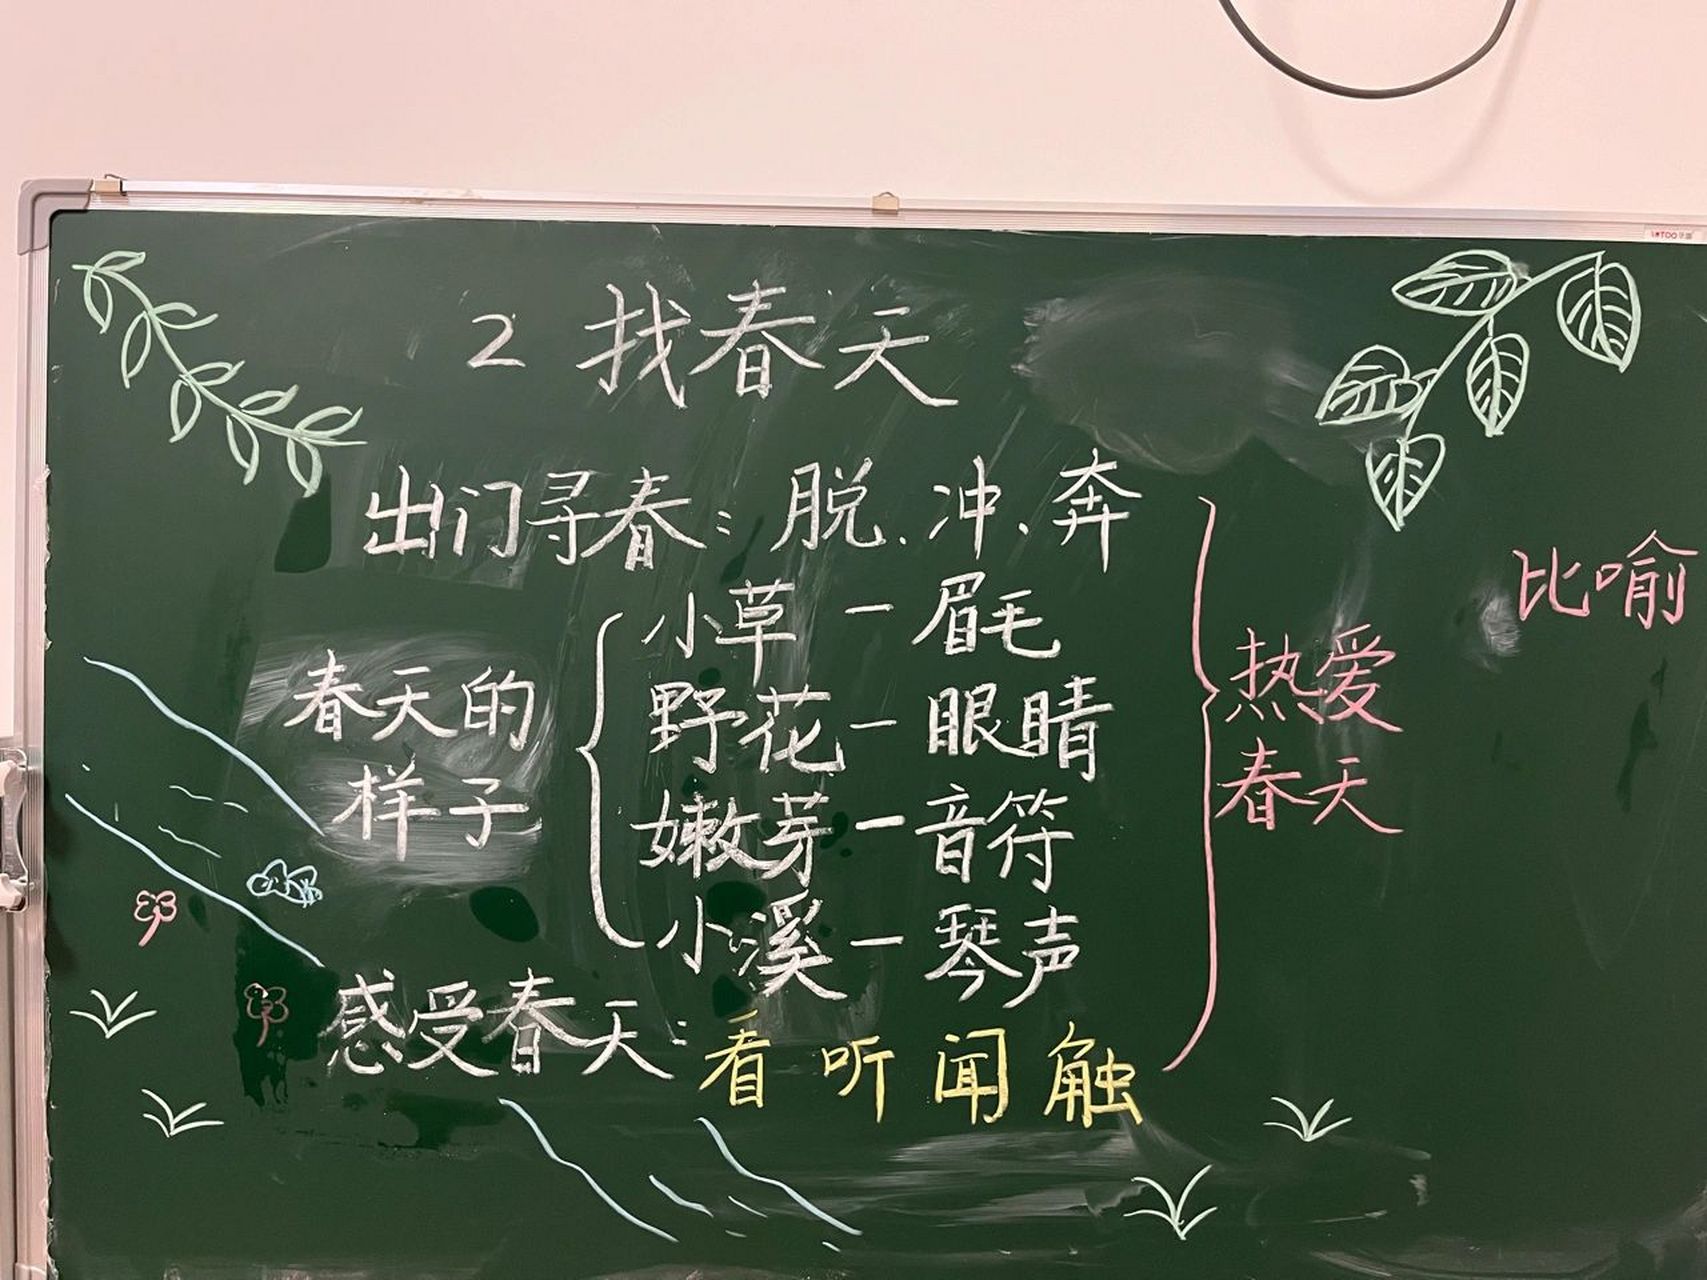 2 找春天
出门寻春：脱、冲、奔
比喻
小草－眉毛
春天的
样子
野花－眼睛
嫩芽－音符
小溪－琴声
热爱
春天
感受春天：看 听 闻 触